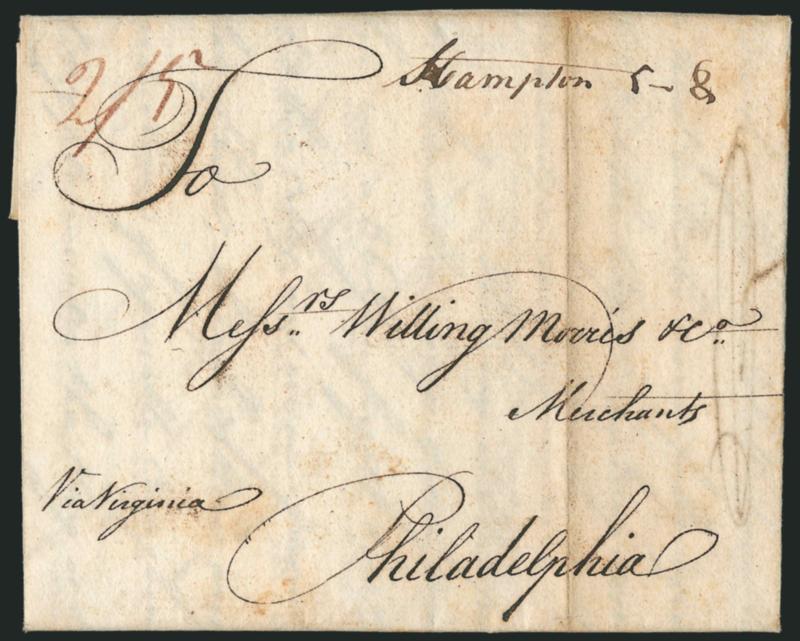 2/5 Hampton 5-8
To
Messrs Willing Morris & Co
Merchants
Via Virginia
Philadelphia